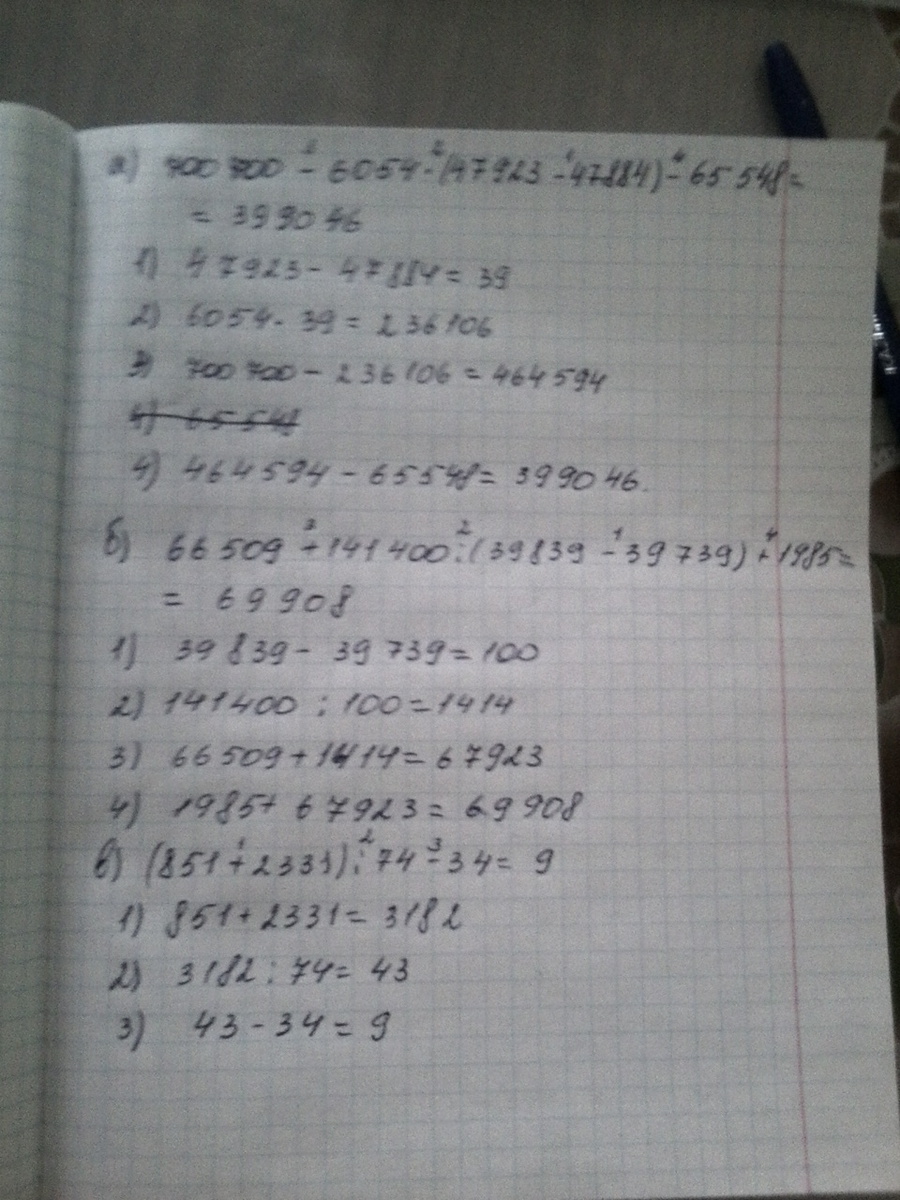 а) 700 700 - 6054 · (47923 - 47884) - 65 548 =
= 399046
1) 47923 - 47884 = 39
2) 6054 · 39 = 236106
3) 700 700 - 236106 = 464594
4) 65548
4) 464594 - 65548 = 399046.
б) 66 509 + 141 400 : (39839 - 39 739) + 1985 =
= 69908
1) 39 839 - 39 739 = 100
2) 141400 : 100 = 1414
3) 66509 + 1414 = 67923
4) 1985 + 67923 = 69908
в) (851 + 2331) : 74 - 34 = 9
1) 851 + 2331 = 3182
2) 3182 : 74 = 43
3) 43 - 34 = 9